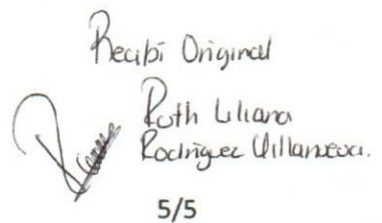 Recibí Original
Ruth Liliana
Rodriguez Villanueva.
5/5